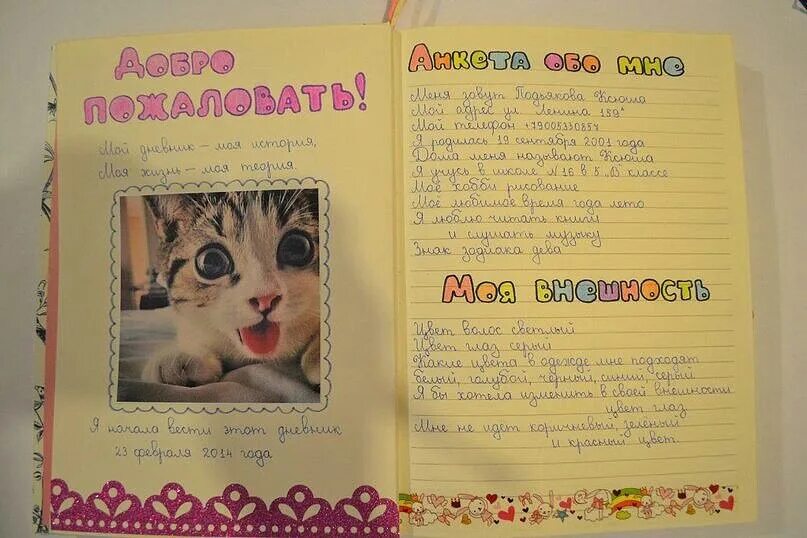 Добро
пожаловать!
Мой дневник – моя история,
Моя жизнь – моя теория.
Я начала вести этот дневник
23 февраля 2014 года
Анкета обо мне
Меня зовут Подьякова Ксюша
Мой адрес ул. Ленина 189
Мой телефон +79005330857
Я родилась 19 сентября 2001 года
Дома меня называют Ксюша
Я учусь в школе №16 в 5 „В" классе
Моё хобби рисование
Моё любимое время года лето
Я люблю читать книги
и слушать музыку
Знак зодиака дева
Моя внешность
Цвет волос светлый
Цвет глаз серый
Какие цвета в одежде мне подходят
белый, голубой, чёрный, синий, серый
Я бы хотела изменить в своей внешности
цвет глаз
Мне не идёт коричневый, зелёный
и красный цвет.